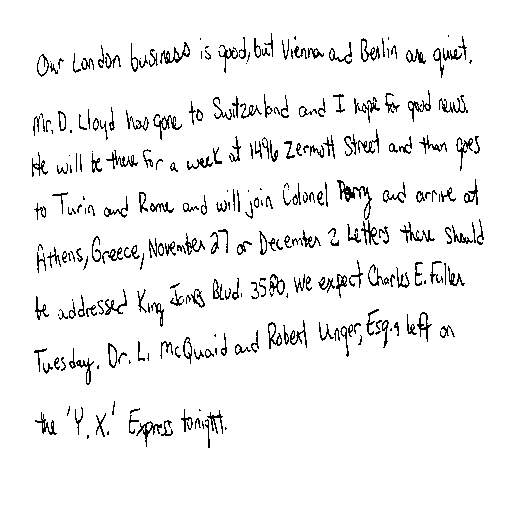 Our London business is good, but Vienna and Berlin are quiet.
Mr. D. Lloyd has gone to Switzerland and I hope for good news.
He will be there for a week at 1496 Zermott Street and then goes
to Turin and Rome and will join Colonel Parry and arrive at
Athens, Greece, November 27 or December 2. Letters there should
be addressed King James Blvd. 3580. We expect Charles E. Fuller
Tuesday. Dr. L. McQuaid and Robert Unger, Esq., left on
the 'Y. X.' Express tonight.